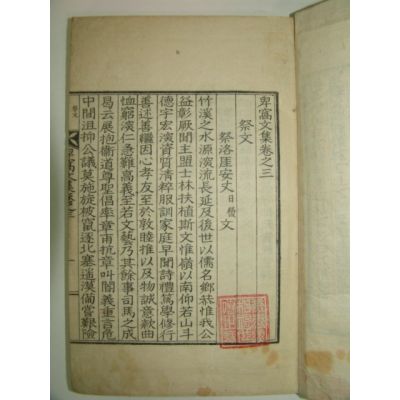 卑窩文集卷之三
祭文
祭洛厓安丈日履文
竹漢之水源演流長延及後世以儒名鄉恭惟我公
益彰厥聞主盟士林扶植斯文惟嶺以南仰若山斗
德宇宏演資質淸粹服訓家庭早聞詩禮篤學修行
善述善繼因心孝友至於敦睦推以及物誠意款曲
恤窮演仁急難高義至若文藝乃其餘事司馬之成
曷云展抱衛道尊聖倡率章甫抗章叫閤義重言危
中閣沮抑公議莫施旋被竄逐北塞遥漠備嘗艱險